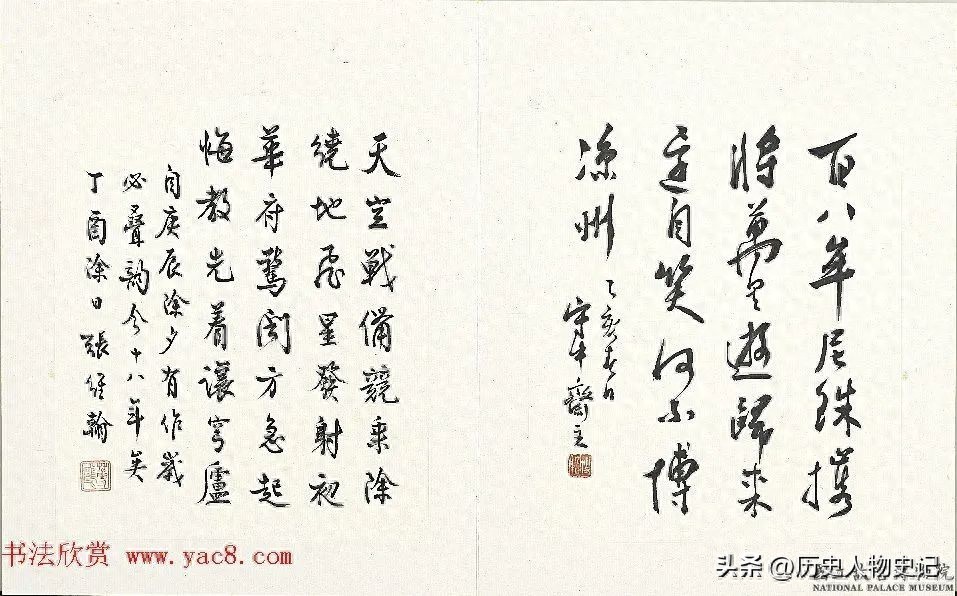 百八牟尼珠攜
將萬里遊歸來
還自笑何不博
涼州
乙亥春日
守中齋主
天空戰備競乘除
繞地飛星發射初
華府驚聞方急起
悔教先着讓穹廬
自庚辰除夕有作歲
必疊韵今十八年矣
丁酉除日 張維翰
书法欣赏 www.yac8.com
头条@历史人物史记
NATIONAL PALACE MUSEUM